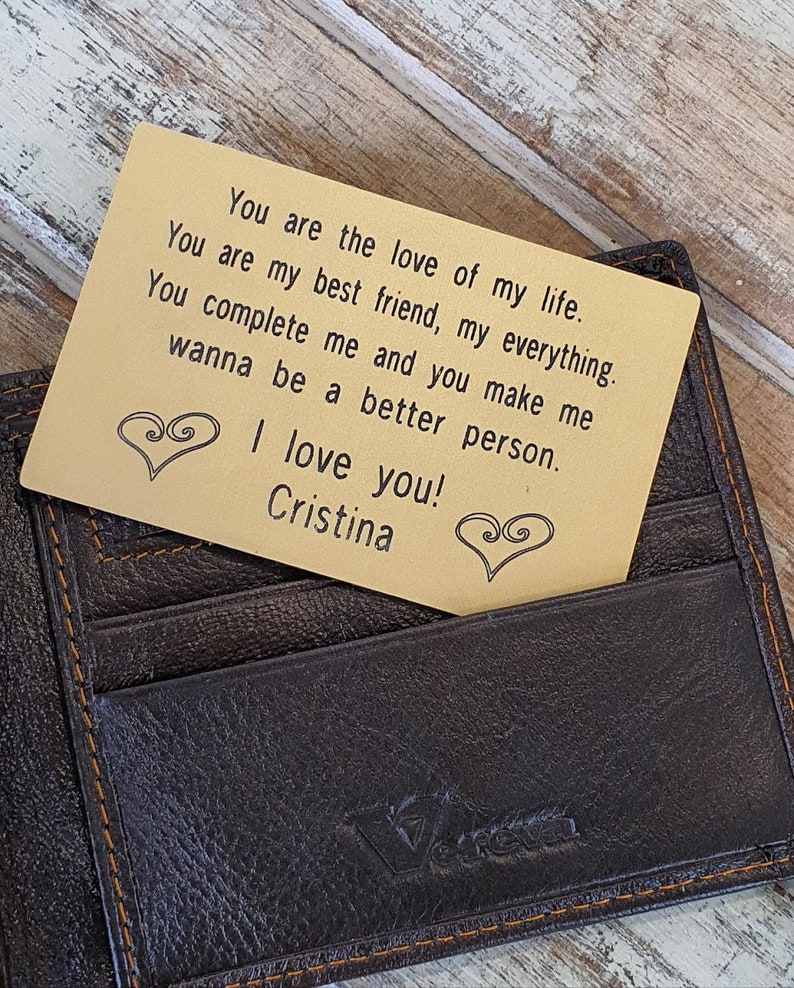 You are the love of my life.
You are my best friend, my everything.
You complete me and you make me
wanna be a better person.
I love you!
Cristina